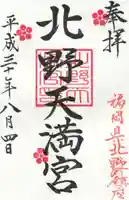 奉拝
北野天満宮
平成三十年八月四日
福岡県北野鎮座